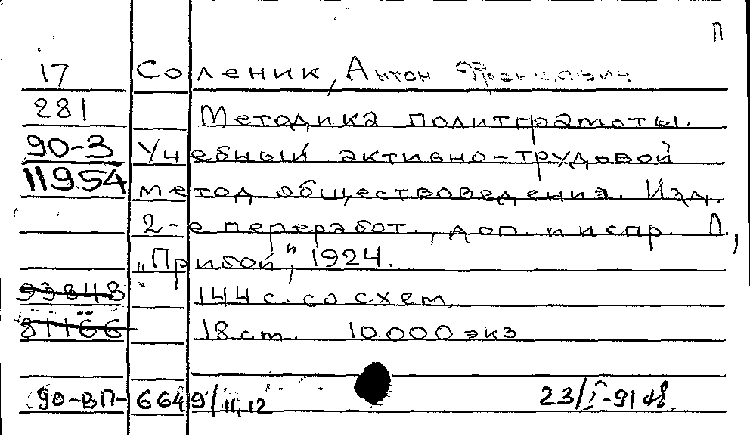 П
17 Соленик, Антон
281 Методика политграмоты.
90-3 Учебный активно-трудовой
11954 метод обществоведения. Изд.
2-е переработ., доп. и испр. Л,
"Прибой", 1924.
93848 144 с. со схем.
81166 18 cm. 10.000 экз
90-ВП-6649/11,12 23/I-91